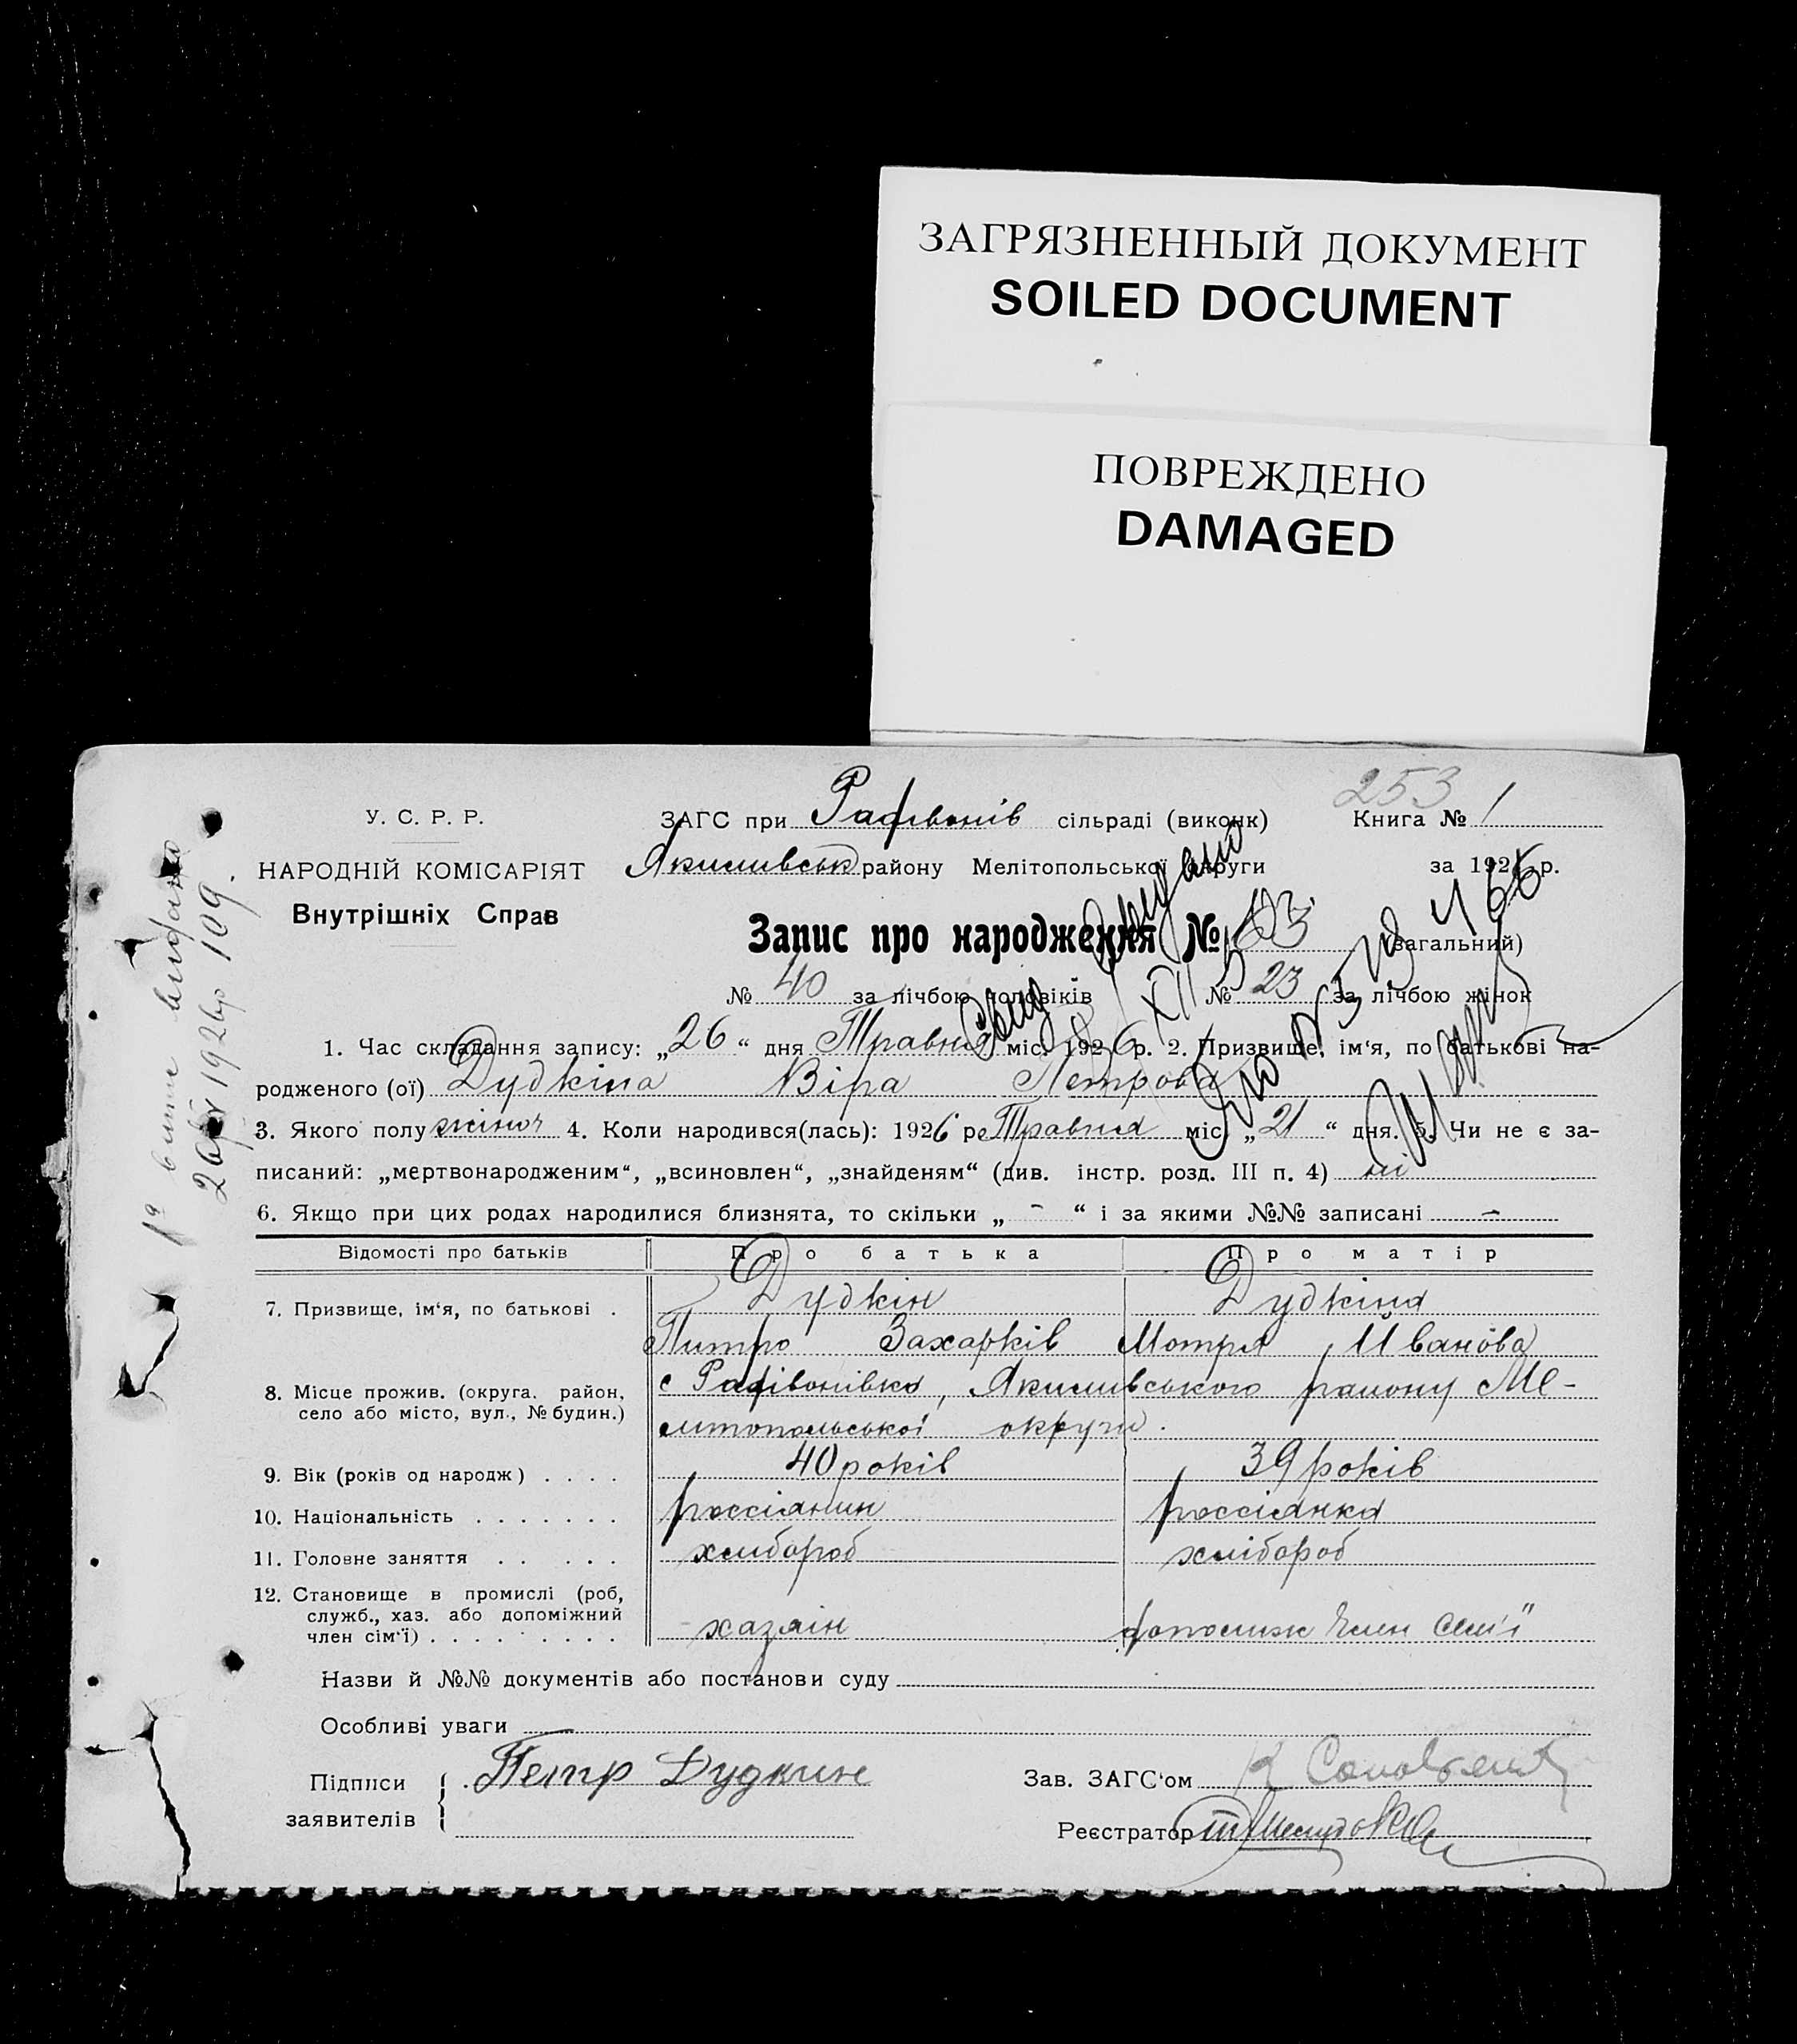 ЗАГРЯЗНЕННЫЙ ДОКУМЕНТ
SOILED DOCUMENT
ПОВРЕЖДЕНО
DAMAGED
253
У. С. Р. Р.
ЗАГС при Рафівонів сільраді (виконк) Книга № 1
НАРОДНІЙ КОМІСАРІЯТ
Якимивськ району Мелітопольської округи за 1926 р.
Внутрішніх Справ
Запис про народження № 63 (загальний)
№ 40 за лічбою чоловіків № 23 за лічбою жінок
1. Час складання запису: „26“ дня Травня міс. 1926 р. 2. Призвище, ім‘я, по батькові на-
родженого (ої) Дудкіна Віра Петрова
3. Якого полу жіноч 4. Коли народився(лась): 1926 р Травня міс. „21“ дня. 5. Чи не є за-
писаний: „мертвонародженим“, „всиновлен“, „знайденям“ (див. інстр. розд. III п. 4) ні
6. Якщо при цих родах народилися близнята, то скільки „ - “ і за якими №№ записані -
Відомості про батьків Про батька Про матір
7. Призвище, ім‘я, по батькові . Дудкін Дудкіна
Питро Захарків Мотря Иванова
8. Місце прожив. (округа, район,
село або місто, вул., № будин.)
с Рафівонівка, Якимивського району Ме-
литопольської округи.
9. Вік (років од народж) . . . . 40 років 39 років
10. Національність . . . . . . . россіанин россіанка
11. Головне заняття . . . . . хлибороб хлібороб
12. Становище в промислі (роб,
служб., хаз. або допоміжний
член сім‘ї) . . . . . . . . . хазяін допомиж член семʼі
Назви й №№ документів або постанови суду
Особливі уваги
Підписи
заявителів
Петр Дудкин
Зав. ЗАГС‘ом
Реєстратор